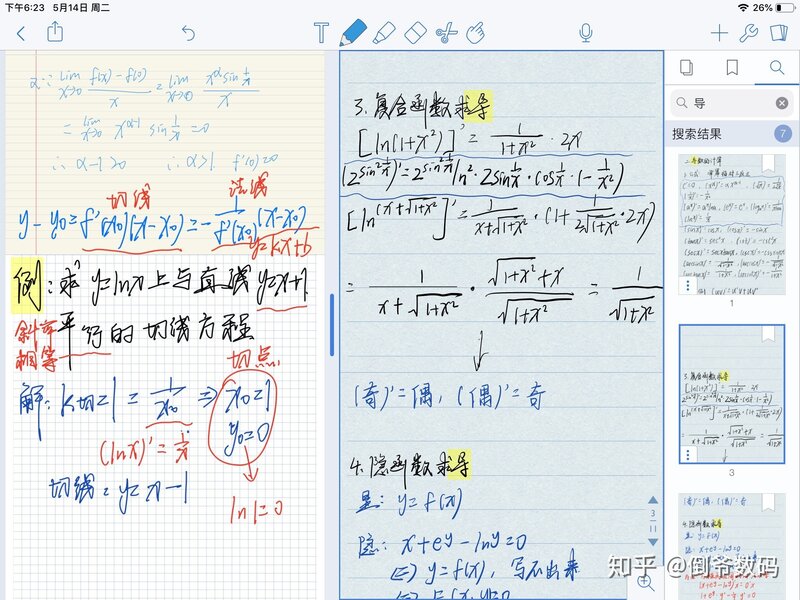 下午6:23 5月14日 周二
26%
α: ∵ lim x→0 f(x)-f(0)/x = lim x→0 x^α sin 1/x / x
= lim x→0 x^(α-1) sin 1/x = 0
∴ α-1>0 ∴ α>1 f'(0)=0
切线 法线
y-y0=f'(x0)(x-x0)=-1/f'(x0)(x-x0)
y=kx+b
例:求y=lnx上与直线y=x+1
平行的切线方程
斜率
相等
切点
解: k切=1=1/x0 ⇒ x0=1
y0=0
(lnx)'=1/x
切线=y=x-1
ln1=0
3.复合函数求导
[ln(1+x²)]'=1/(1+x²)·2x
(2^(sin²1/x))'=2^(sin²1/x)ln2·2sin1/x·cos1/x·(-1/x²)
[ln(x+√(1+x²))]'=1/(x+√(1+x²))·(1+1/(2√(1+x²))·2x)
=1/(x+√(1+x²))·(√(1+x²)+x)/√(1+x²)=1/√(1+x²)
(奇)'=偶, (偶)'=奇
4.隐函数求导
显: y=f(x)
隐: x+e^y-lny=0
⇔ y=f(x), 写不出来
3
11
导
搜索结果
7
1
3
知乎 @倒爷数码